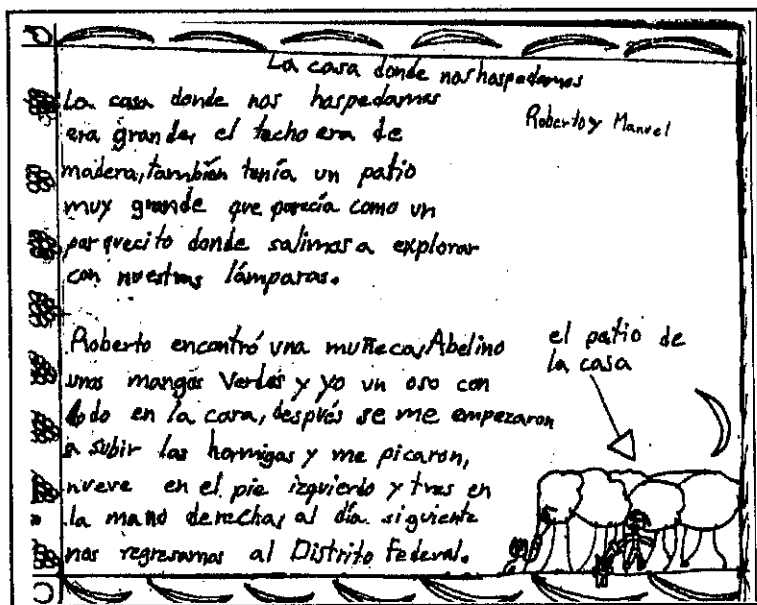 La casa donde nos hospedamos
Roberto y Manuel
La casa donde nos hospedamos
era grande, el techo era de
madera, también tenía un patio
muy grande que parecía como un
parquecito donde salimos a explorar
con nuestras lámparas.
Roberto encontró una muñeca, Abelino
unos mangos verdes y yo un oso con
lodo en la cara, después se me empezaron
a subir las hormigas y me picaron,
nueve en el pie izquierdo y tres en
la mano derecha, al día siguiente
nos regresamos al Distrito Federal.
el patio de
la casa